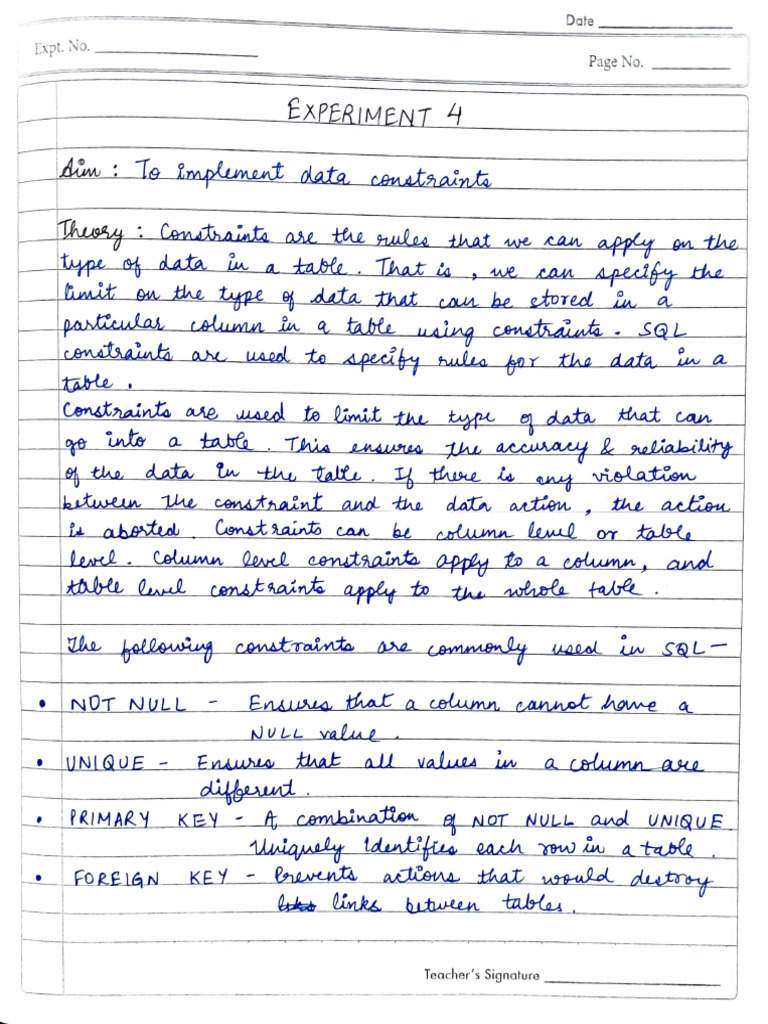 Date
Expt. No.
Page No.
EXPERIMENT 4
Aim : To implement data constraints
Theory : Constraints are the rules that we can apply on the
type of data in a table. That is, we can specify the
limit on the type of data that can be stored in a
particular column in a table using constraints. SQL
constraints are used to specify rules for the data in a
table.
Constraints are used to limit the type of data that can
go into a table. This ensures the accuracy & reliability
of the data in the table. If there is any violation
between the constraint and the data action, the action
is aborted. Constraints can be column level or table
level. Column level constraints apply to a column, and
table level constraints apply to the whole table.
The following constraints are commonly used in SQL-
• NOT NULL - Ensures that a column cannot have a
NULL value.
• UNIQUE - Ensures that all values in a column are
different.
• PRIMARY KEY - A combination of NOT NULL and UNIQUE.
Uniquely identifies each row in a table.
• FOREIGN KEY - Prevents actions that would destroy
links between tables.
Teacher's Signature